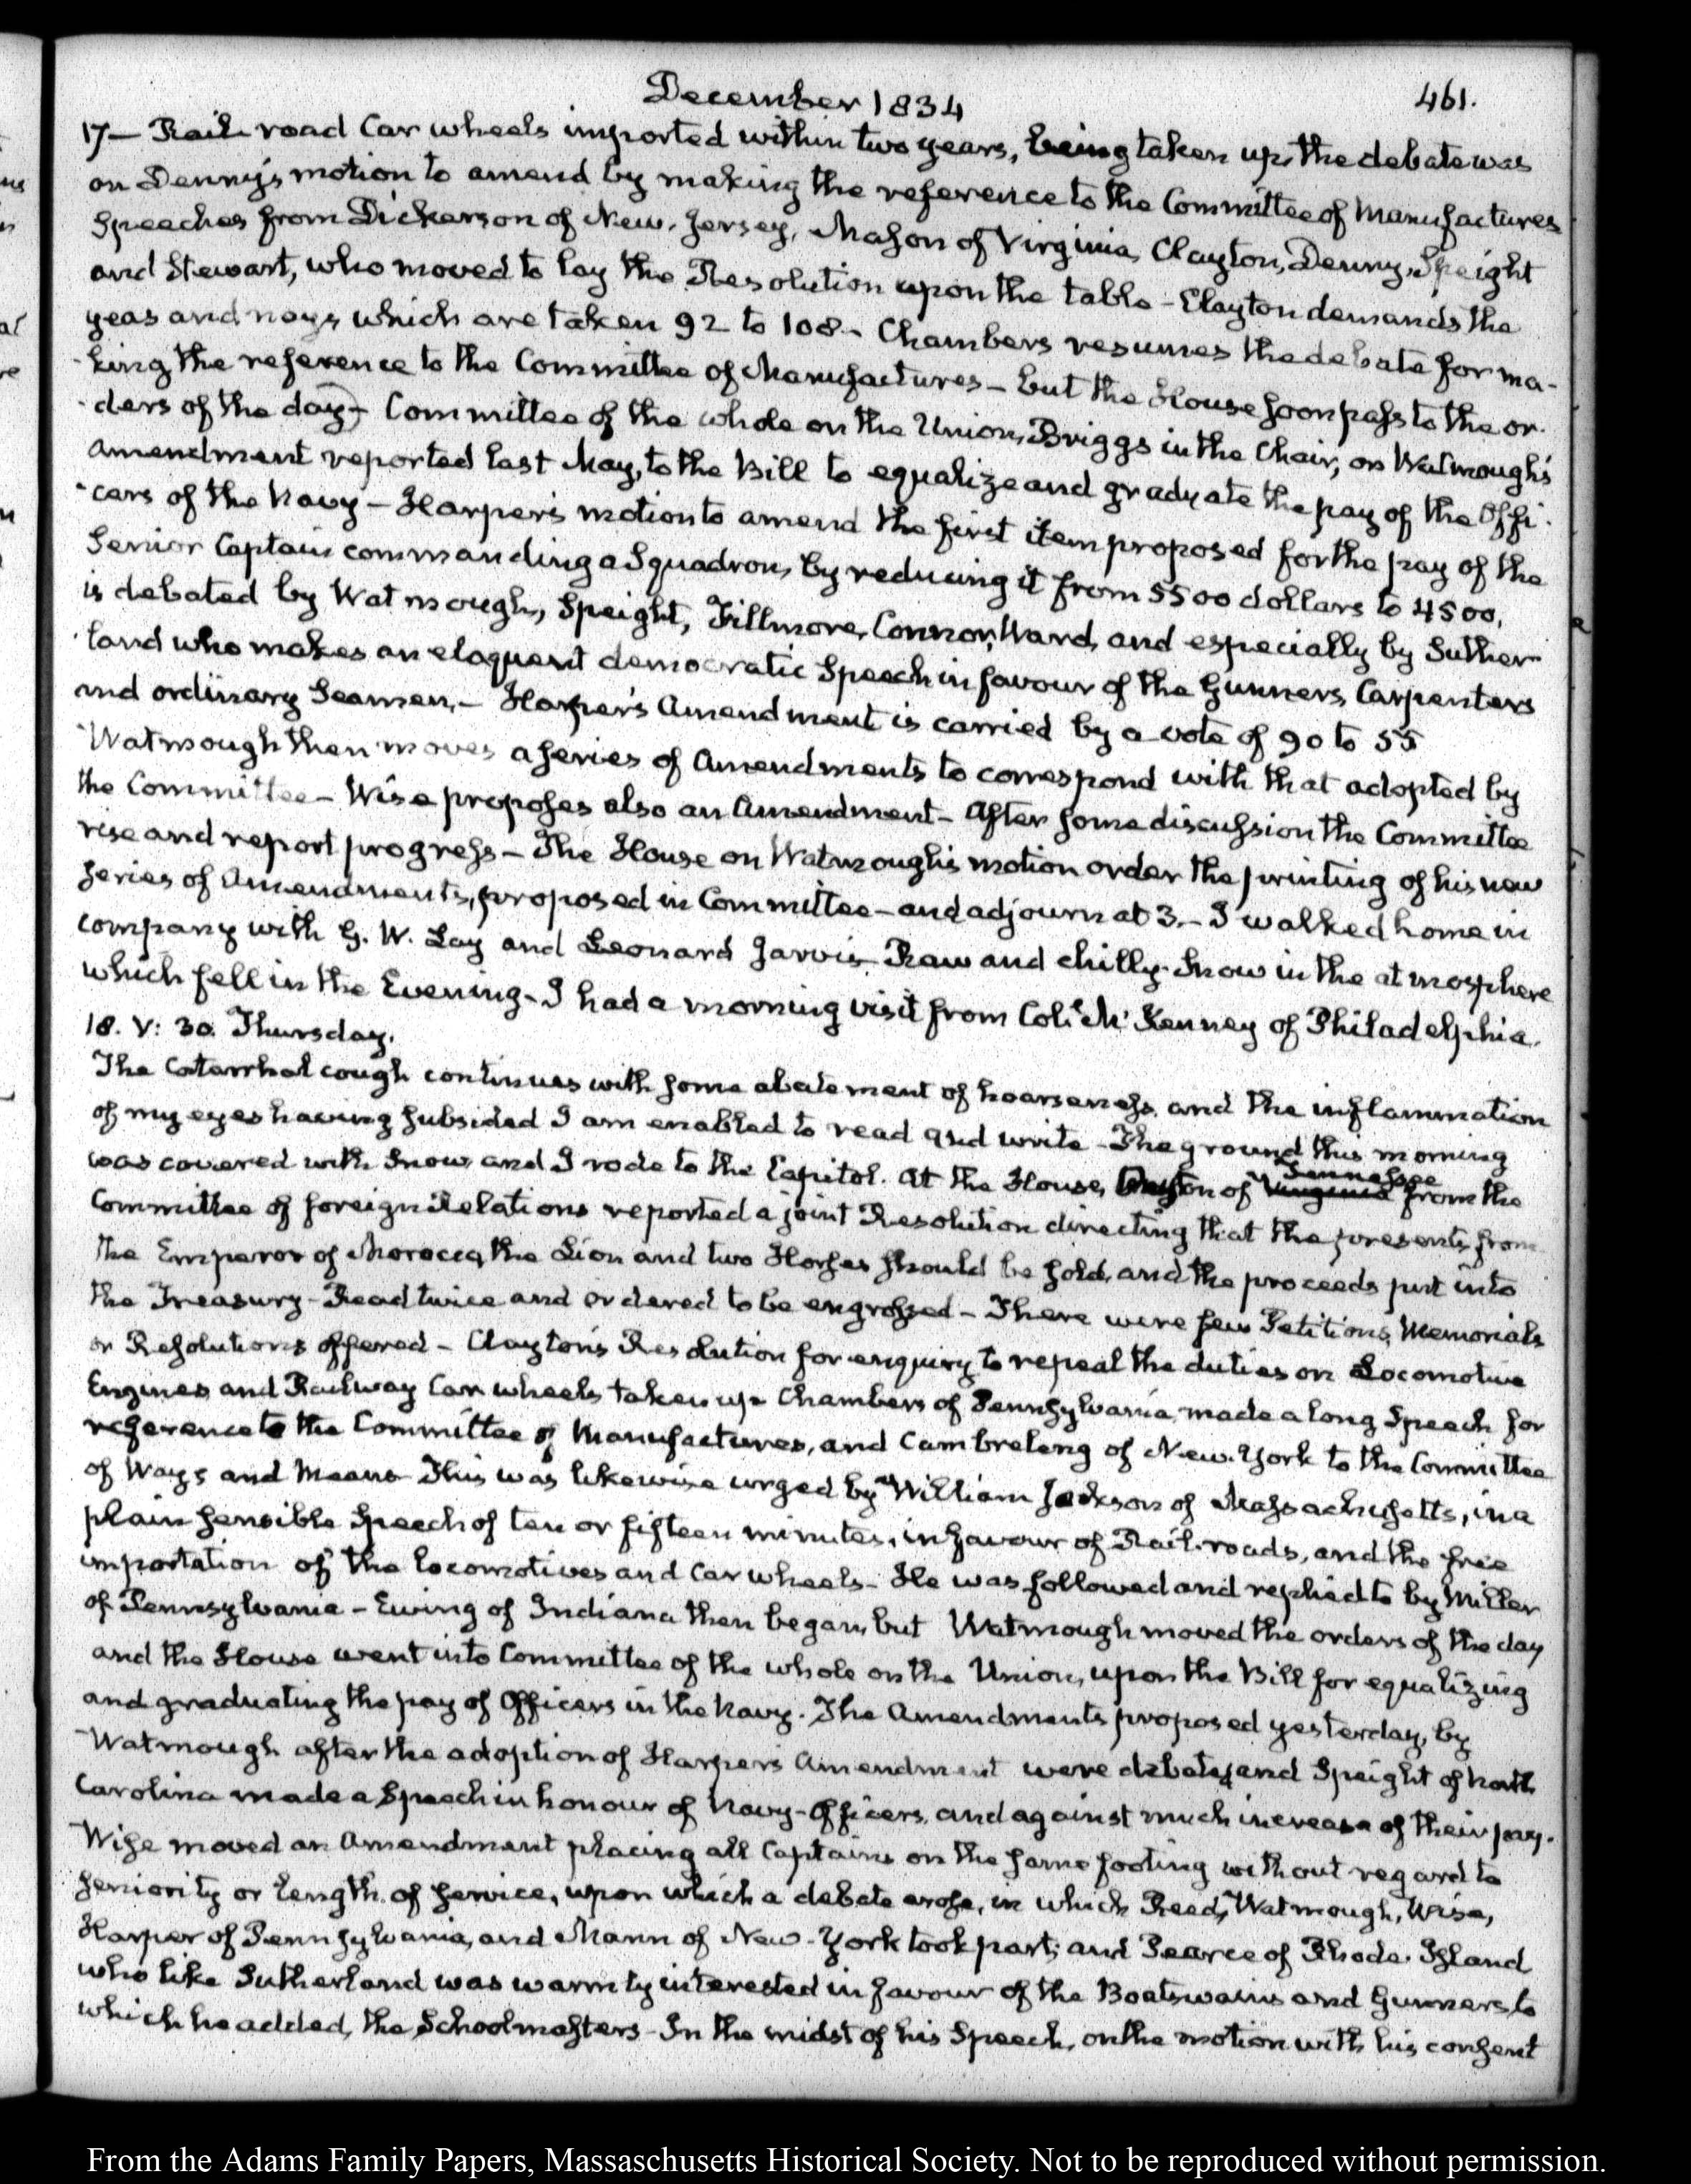 December 1834
461.
17— Rail road Car wheels imported within two years, being taken up, the debate was
on Denny's motion to amend by making the reference to the Committee of Manufactures
Speeches from Dickerson of New-Jersey, Mason of Virginia, Clayton, Denny, Speight
and Stewart, who moved to lay the Resolution upon the table – Clayton demands the
yeas and nays which are taken 92 to 108 – Chambers resumes the debate for ma-
-king the reference to the Committee of Manufactures – but the House soon pass to the or-
-ders of the day – Committee of the whole on the Union, Briggs in the Chair, on Watmough's
amendment reported last May, to the Bill to equalize and graduate the pay of the Offi-
-cers of the Navy – Harper's motion to amend the first item proposed for the pay of the
Senior Captain commanding a Squadron, by reducing it from 5500 dollars to 4500,
is debated by Watmough, Speight, Fillmore, Connor, Ward, and especially by Suther-
-land who makes an eloquent democratic Speech in favour of the Gunners, Carpenters
and ordinary Seamen. – Harper's Amendment is carried by a vote of 90 to 55
Watmough then moves a series of Amendments to correspond with that adopted by
the Committee – Wise proposes also an Amendment – After some discussion the Committee
rise and report progress – The House on Watmough's motion order the printing of his new
series of Amendments, proposed in Committee – and adjourn at 3. – I walked home in
company with G. W. Lay and Leonard Jarvis. Raw and chilly. Snow in the atmosphere
which fell in the Evening – I had a morning visit from Coll. McKenney of Philadelphia.
18. V: 30. Thursday.
The Catarrhal cough continues with some abatement of hoarseness, and the inflammation
of my eyes having subsided I am enabled to read and write – The ground this morning
was covered with Snow, and I rode to the Capitol. At the House, of Virginia Tennessee from the
Committee of foreign Relations reported a joint Resolution directing that the presents from
the Emperor of Morocco, the Lion and two Horses should be sold, and the proceeds put into
the Treasury – Read twice and ordered to be engrossed – There were few Petitions, Memorials
or Resolutions offered – Clayton's Resolution for enquiry to repeal the duties on Locomotive
Engines and Railway Car wheels taken up. Chambers of Pennsylvania, made a long Speech for
reference to the Committee of Manufactures, and Cambreleng of New-York to the Committee
of Ways and Means. This was likewise urged by William Jackson of Massachusetts, in a
plain sensible Speech of ten or fifteen minutes, in favour of Rail-roads, and the free
importation of the locomotives and Car wheels – He was followed and replied to by Miller
of Pennsylvania – Ewing of Indiana then began, but Watmough moved the orders of the day
and the House went into Committee of the whole on the Union, upon the Bill for equalizing
and graduating the pay of Officers in the Navy. The Amendments proposed yesterday, by
Watmough after the adoption of Harper's Amendment were debated, and Speight of North
Carolina made a Speech in honour of Navy-Officers, and against much increase of their pay.
Wise moved an Amendment placing all Captains on the same footing without regard to
seniority or length of service, upon which a debate arose, in which Reed, Watmough, Wise,
Harper of Pennsylvania, and Mann of New-York took part; and Pearce of Rhode-Island
who like Sutherland was warmly interested in favour of the Boatswains and Gunners, to
which he added, the Schoolmasters – In the midst of his Speech, on the motion with his consent
From the Adams Family Papers, Massaschusetts Historical Society. Not to be reproduced without permission.